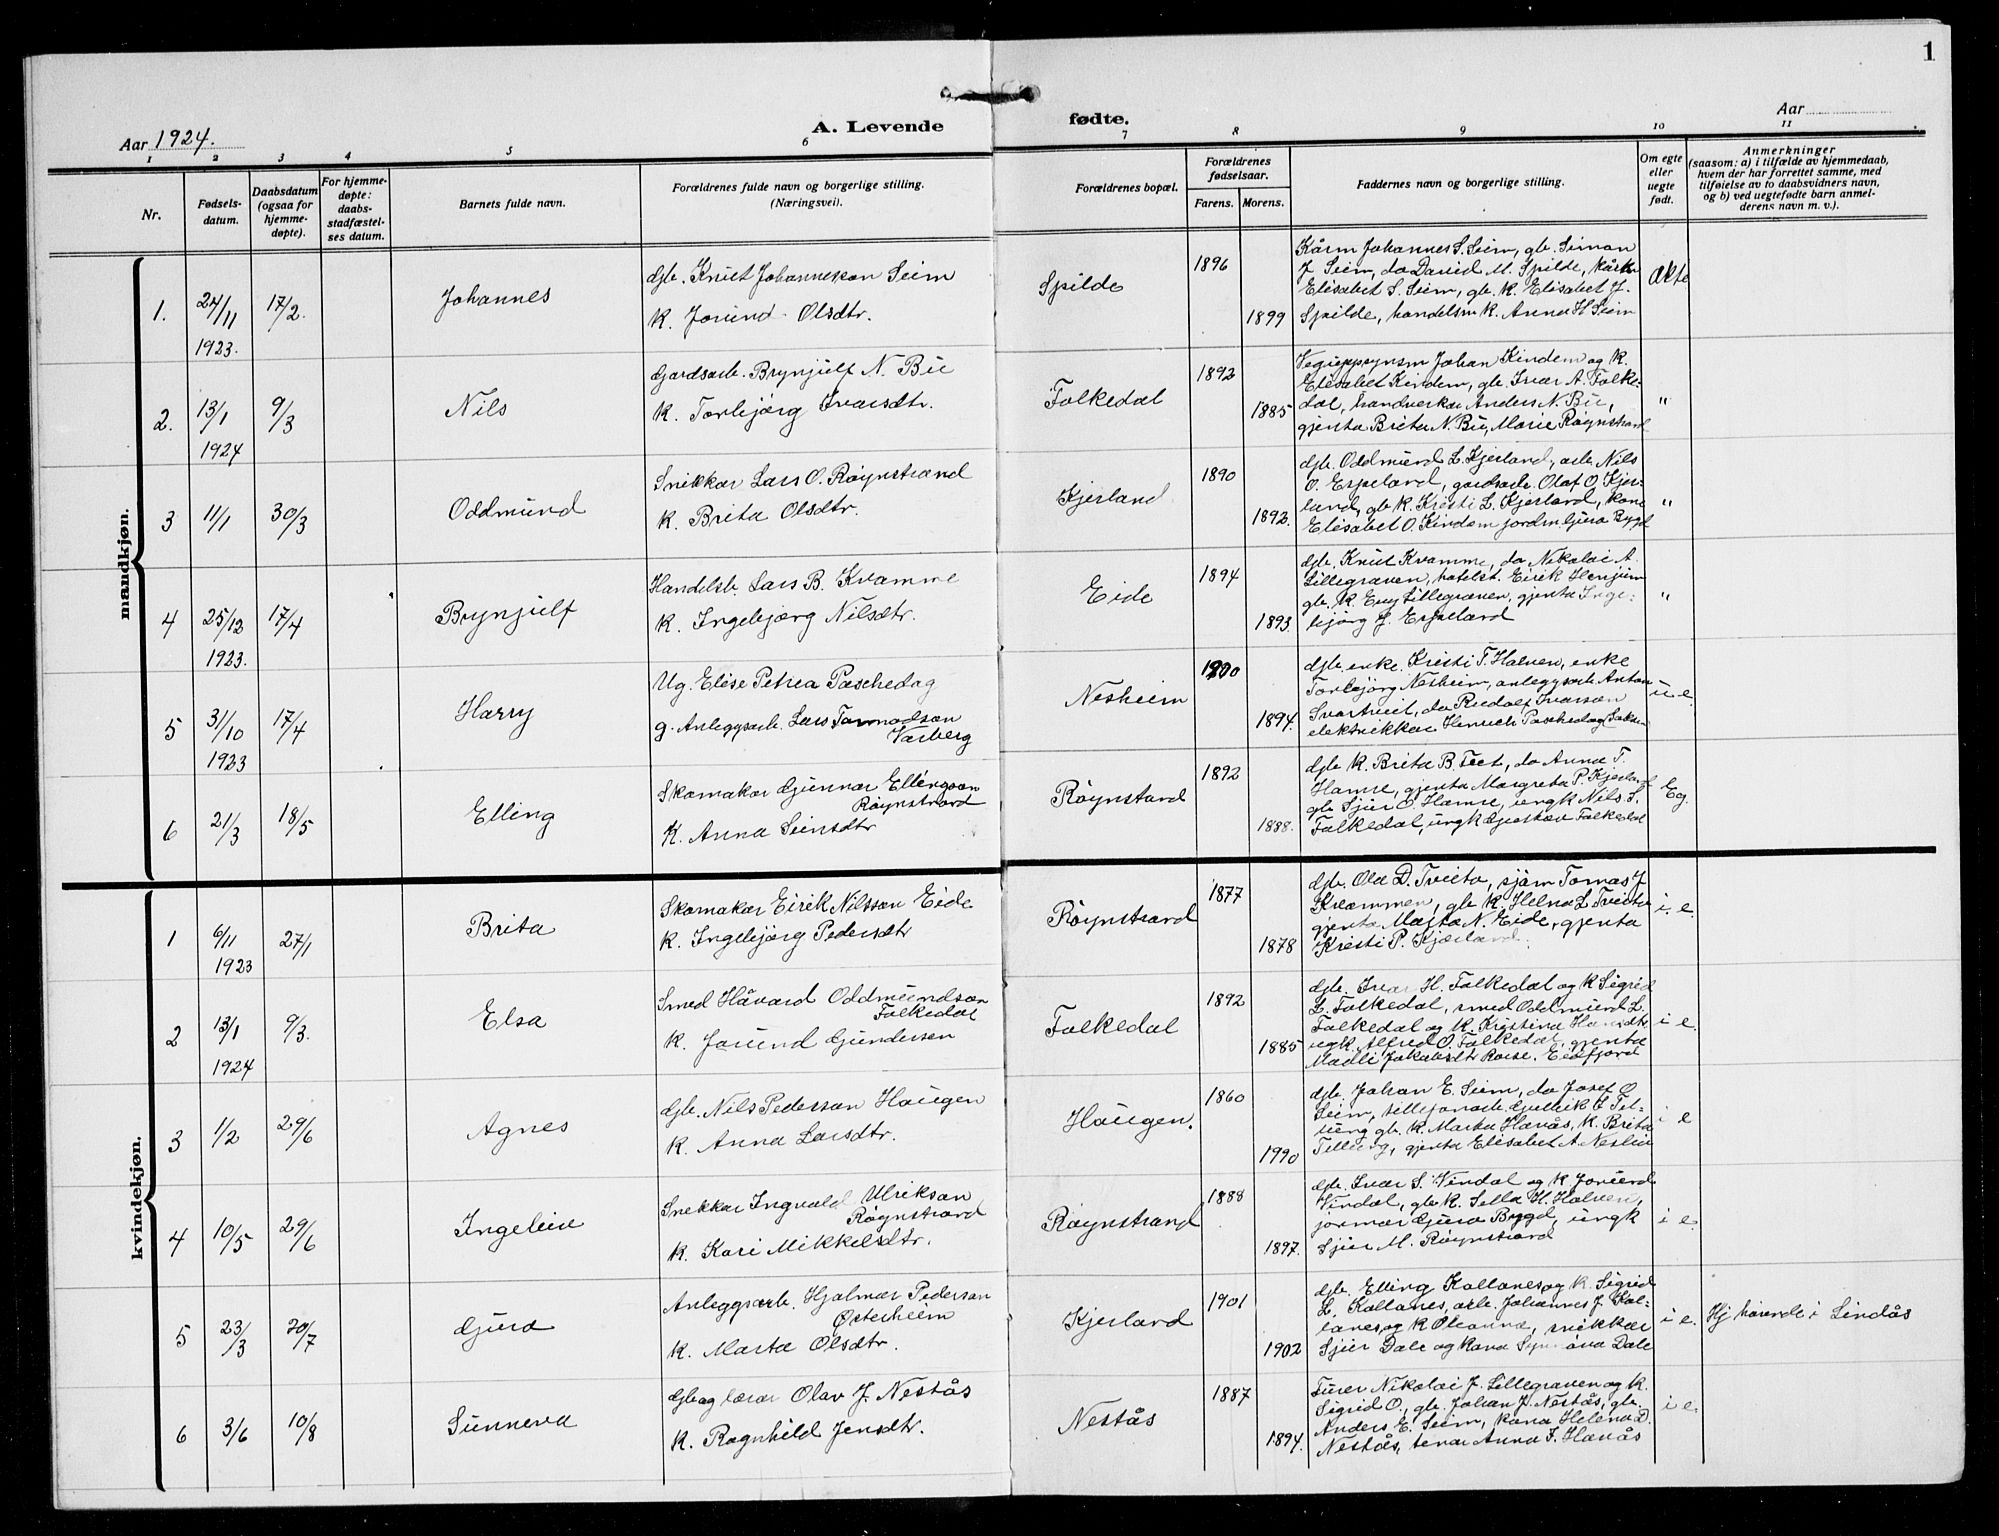 1
Aar 1924.
A. Levende fødte.
Aar
1 2 3 4 5 6 7 8 9 10 11
Nr.
Fødsels-
datum.
Daabsdatum
(ogsaa for
hjemme-
døpte).
For hjemme-
døpte:
daabs-
stadfæstel-
ses datum.
Barnets fulde navn.
Forældrenes fulde navn og borgerlige stilling.
(Næringsvei).
Forældrenes bopæl.
Forældrenes
fødselsaar.
Farens. Morens.
Faddernes navn og borgerlige stilling.
Om egte
eller
uegte
født.
Anmerkninger
(saasom: a) i tilfælde av hjemmedaab,
hvem der har forrettet samme, med
tilføielse av to daabsvidners navn,
og b) ved uegtefødte barn anmel-
derens navn m. v.).
mandkjøn.
1. 24/11 1923. 17/2. Johannes
gb. Knut Johannesson Seim
K. Jorund Olsdtr.
Spilde 1896 1899
Kårm Johannes S. Seim, gb. Simon
J. Seim, do David M. Spilde, kårk.
Elisabet S. Seim, gb. K. Elisabet J.
Spilde, handelsm K. Anna H Seim
Ækte
2. 13/1 1924 9/3 Nils
Gardsarb. Brynjulf N. Bu
K. Torbjørg Ivarsdtr.
Folkedal 1892 1885
Veguppsynsm Johan Kindem og K.
Elisabet Kindem, gb. Ivar A. Folke-
dal, handverkar Anders N. Bu,
gjenta Brita N. Bu, Marie Røynstrand
"
3 11/1 30/3 Oddmund
Snikkar Lars O. Røynstrand
K. Brita Olsdtr.
Kjerland 1890 1892.
gb. Oddmund L. Kjerland, arb. Nils
O. Espeland, gardsarb. Olaf O. Kjer-
land, gb K. Kristi L. Kjerland, kona
Elisabet O. Kindem jordm Gjura Bygd
"
4 25/12 1923. 17/4 Brynjulf
Handelsb. Lars B. Kvamme
K. Ingebjørg Nilsdtr.
Eide 1894 1893.
gb. Knut Kvamme, do Nikolai A.
Lillegraven, hotelst. Eirik Henjum
gb. K. Eny Lillegraven, gjenta Inge-
bjørg J. Espeland
"
5 31/10 1923 17/4 Harry
Ug. Elise Petrea Paschedag
g. Anleggsarb. Lars Tormodson
Varberg
Nesheim 1900 1894.
gb. enke. Kristi T. Halven, enke
Torbjörg Nesheim, anleggsarb Anton
Svartveit, do Rudolf Ivarsen
eleksnikkar Henrich Paschedag
u e.
6 21/3 18/5 Elling
Skomakar Gunnar Ellingson
Røynstrand
K. Anna Seimsdtr
Røynstrand 1892 1888.
gb. K. Brita B. Tvet, do Anna T.
Hamre, gjenta Margreta P. Kjerland
gb Sjur O. Hamre, ungk Nils S.
Folkedal, ungk Gustav Folkedal
Eg.
kvindekjøn.
1 6/11 1923 27/1 Brita
Skomakar Eirik Nilsson Eide
K. Ingebjörg Pedersdtr
Røynstrand 1877 1878
gb. Ola D. Tveito, sjöm Tomas J
Kvammen, gb K. Helna L Tveito
gjenta Marta N. Eide, gjenta
Kristi P. Kjærland.
i. e.
2 13/1 1924 9/3. Elsa
Smed Håvard Oddmundson
Folkedal
K. Jorund Gundersen
Folkedal 1892 1885
gb. Ivar H. Folkedal og K Sigrid
L. Folkedal, smed Oddmund L.
Folkedal og K. Kristina
ungk. Alfred O. Folkedal, gjenta
Madli Jakobsdtr Eidfjord
i e.
3 1/2 29/6 Agnes
gb. Nils Pederson Haugen
K. Anna Larsdtr.
Haugen. 1860 1990
gb. Johan E. Seim, do Josef O
Seim,
gb. K. Marta Hanås, K. Brita
gjenta Elisabet A. Neslin
i e
4 10/5 29/6 Ingeleiv
Snekkar Ingvald Ulrikson
Røynstrand
K. Kari Mikkelsdtr.
Røynstrand 1888 1897.
gb. Ivar S. Vindal og K Jorund
Vindal, gb. K. Sella H. Halven,
jormor Gjura Bygd, ungk
Sjur M. Røynstrand
i e.
5 23/3 20/7 Gjura
Anleggsarb. Hjalmar Pederson
Østerheim
K. Marta Olsdtr.
Kjerland 1901 1902
gb. Elling Kollanes og K. Sigrid
L. Kollanes, arb. Johannes J. Kol-
lanes og K Oleanna, snikkar
Sjur Dale og kona Synnøva Dale
i e.
Hj. høyrande i Lindås
6 3/6 10/8 Sunneva
Gb og lærar Olav J. Nestås
K. Ragnhild Jensdtr.
Nestås 1887 1894.
Furer Nikolai J. Lillegraven og K.
Sigrid O., gb. Johan J. Nestås, gb.
Anders E. Seim, kona Helena D.
Nestås, tenar Anna F. Hanås
i e.